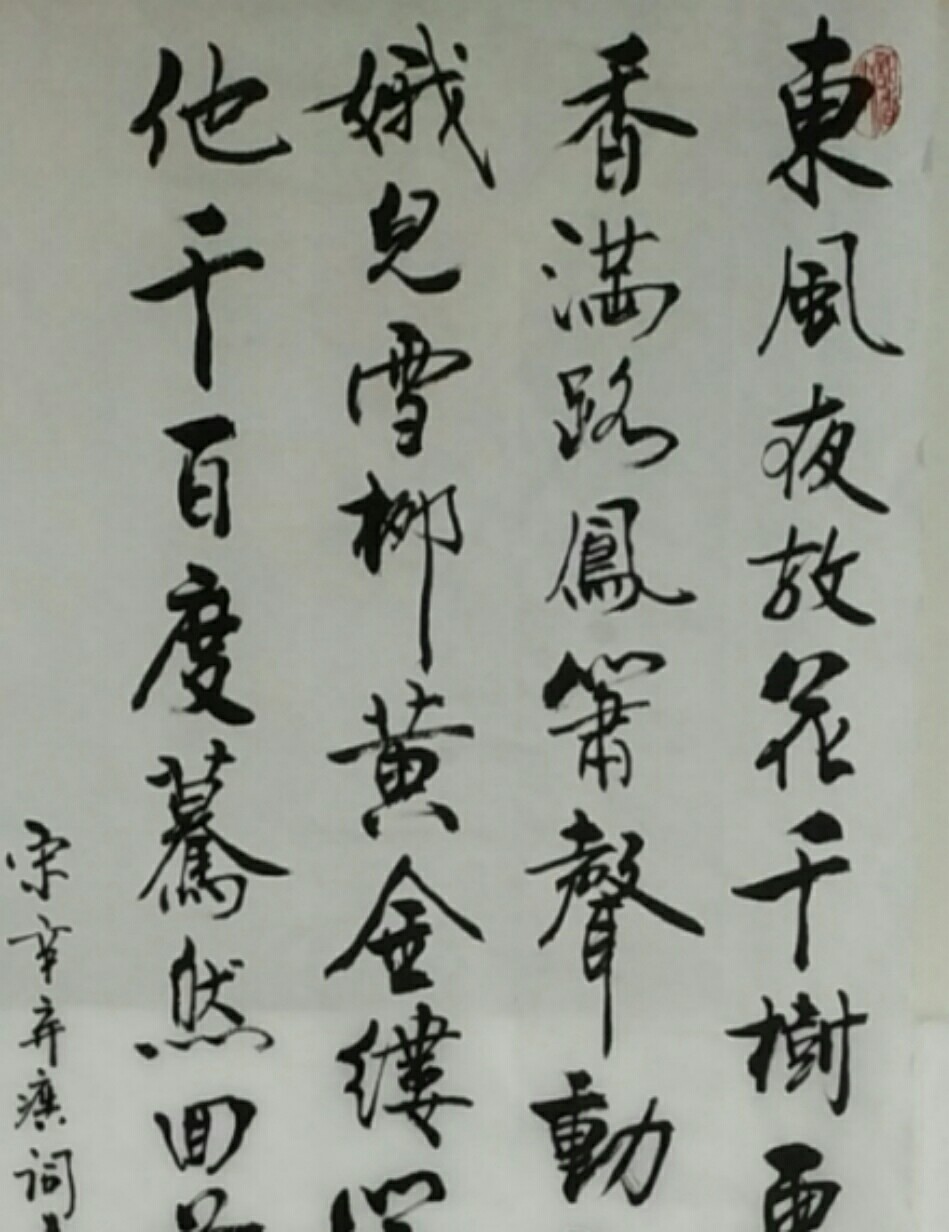 東風夜放花千樹更
香滿路鳳簫聲動
娥兒雪柳黄金縷
他千百度驀然回
宋辛弃疾詞